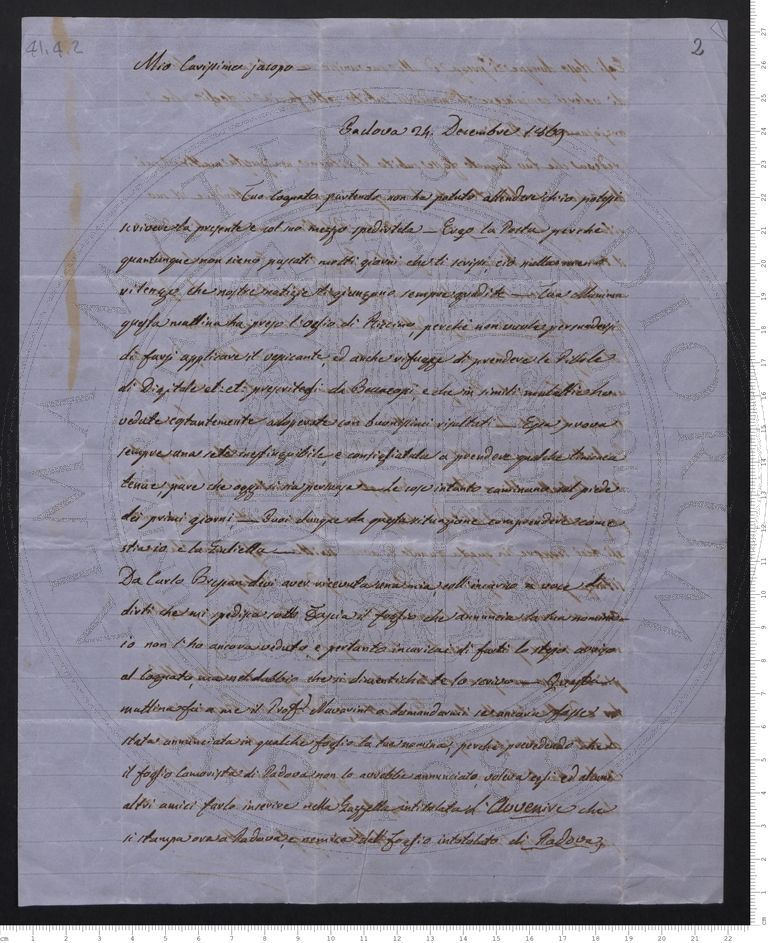 41.4.2
2
Mio Carissimo Jacopo —
Padova 24. Decembre 1869
Tuo Cognato partendo non ha potuto attendere ch'io potessi
scrivere la presente e col suo mezzo spedirtela — Ergo la Posta perchè
quantunque non sieno passati molti giorni che ti scrissi, ciò nulla meno
che nostre notizie ti giungano sempre gradite — Tua Mamma
questa mattina ha preso l'oglio di Ricino, perchè non vuole persuadersi
di farsi applicare il vescicante, ed anche rifugge di prendere le Pillole
di Digitale et: et: prescritegli da e che in simili mallattie ho
vedute costantemente adoperate con buonissimi risultati — Essa prova
sempre una sete inestinguibile, e consigliatala a prendere qualche
pare che oggi si sia persuasa — Le cose intanto caminano sul piede
dei primi giorni — Puoi dunque da questa situazione comprendere come
stia io e la Giulietta —
Da Carlo devi aver ricevuta una mia coll'incarico a voce di
dirti che mi spedisca sotto Fascia il foglio che annuncia la tua nomina
io non l'ho ancora veduto, e pertanto incaricai di farti lo stesso avviso
al Cognato, ma nel dubbio che si dimentichi te lo scrivo — Questa
mattina fu a me il Prof.r a domandarmi se ancora fosse
stata annunciata in qualche foglio la tua nomina, perchè prevedendo che
il foglio Camorista di Padova non lo avrebbe annunciato, voleva egli ed alcuni
altri amici farlo inserire nella Gazzetta intitolata l'Avvenire che
si stampa ora a Padova, e nemica del Foglio intitolato di Padova,